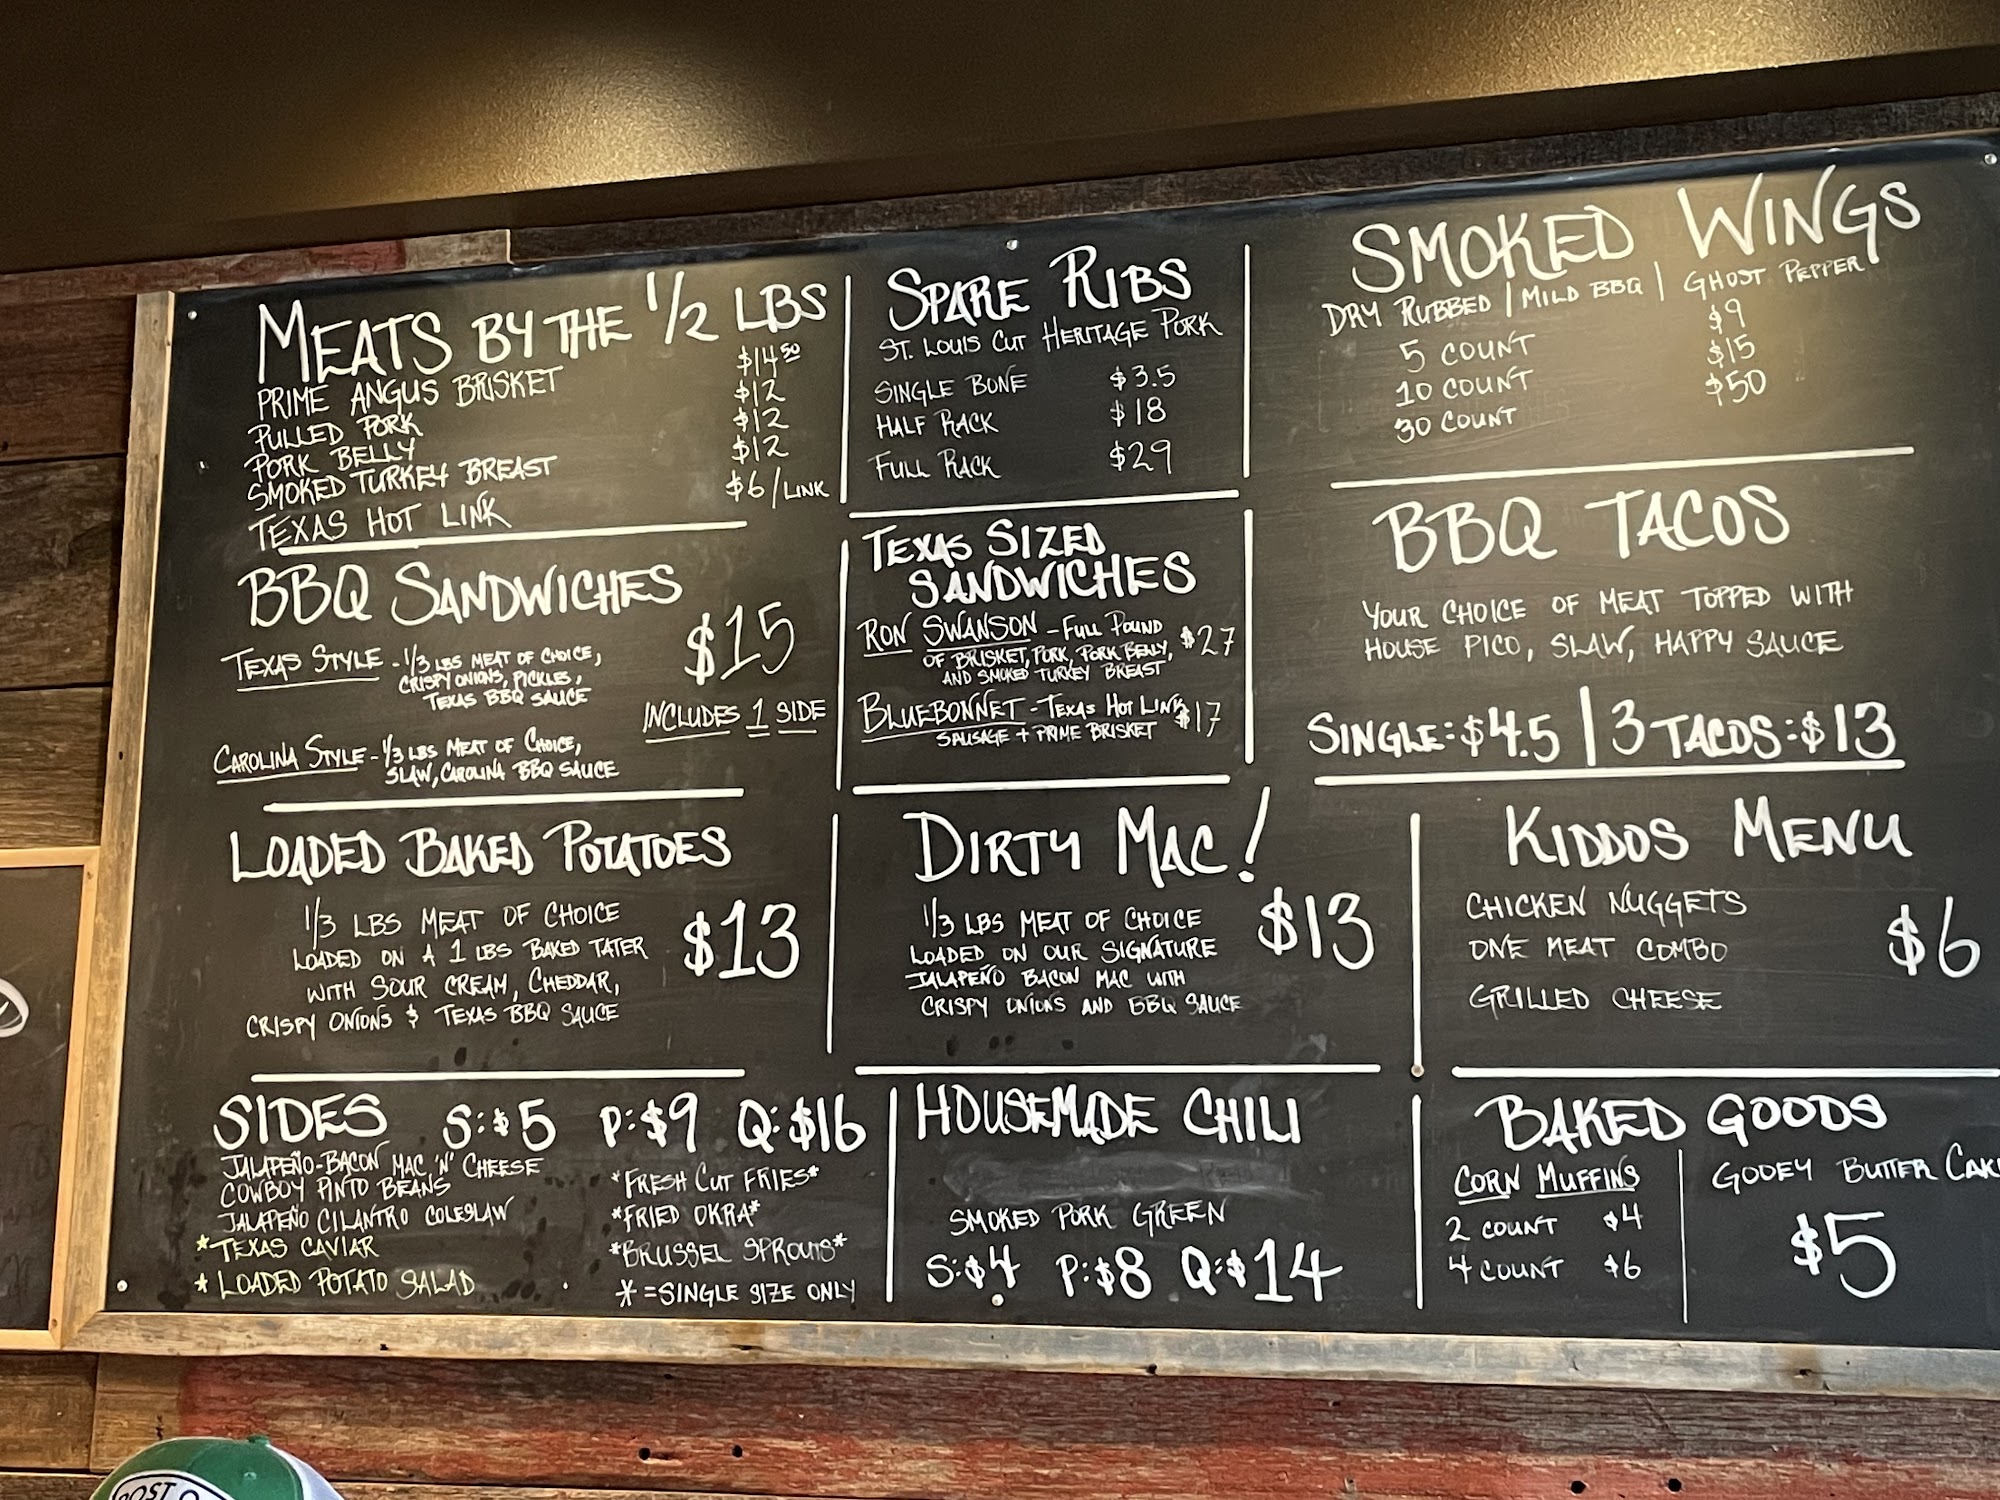 MEATS BY THE 1/2 LBS
PRIME ANGUS BRISKET $14.50
PULLED PORK $12
PORK BELLY $12
SMOKED TURKEY BREAST $12
TEXAS HOT LINK $6/LINK
SPARE RIBS
ST. LOUIS CUT HERITAGE PORK
SINGLE BONE $3.5
HALF RACK $18
FULL RACK $29
SMOKED WINGS
DRY RUBBED | MILD BBQ | GHOST PEPPER
5 COUNT $9
10 COUNT $15
30 COUNT $50
BBQ SANDWICHES
TEXAS STYLE - 1/3 LBS MEAT OF CHOICE,
CRISPY ONIONS, PICKLES,
TEXAS BBQ SAUCE
$15
INCLUDES 1 SIDE
CAROLINA STYLE - 1/3 LBS MEAT OF CHOICE,
SLAW, CAROLINA BBQ SAUCE
TEXAS SIZED
SANDWICHES
RON SWANSON - FULL POUND
OF BRISKET, PORK, PORK BELLY,
AND SMOKED TURKEY BREAST
$27
BLUEBONNET - TEXAS HOT LINK
SAUSAGE + PRIME BRISKET
$17
BBQ TACOS
YOUR CHOICE OF MEAT TOPPED WITH
HOUSE PICO, SLAW, HAPPY SAUCE
SINGLE: $4.5 | 3 TACOS: $13
LOADED BAKED POTATOES
1/3 LBS MEAT OF CHOICE
LOADED ON A 1 LBS BAKED TATER
WITH SOUR CREAM, CHEDDAR,
CRISPY ONIONS & TEXAS BBQ SAUCE
$13
DIRTY MAC!
1/3 LBS MEAT OF CHOICE
LOADED ON OUR SIGNATURE
JALAPEÑO BACON MAC WITH
CRISPY ONIONS AND BBQ SAUCE
$13
KIDDOS MENU
CHICKEN NUGGETS
ONE MEAT COMBO
GRILLED CHEESE
$6
SIDES S:$5 P:$9 Q:$16
JALAPEÑO-BACON MAC 'N' CHEESE
COWBOY PINTO BEANS
JALAPEÑO CILANTRO COLESLAW
*TEXAS CAVIAR
*LOADED POTATO SALAD
*FRESH CUT FRIES*
*FRIED OKRA*
*BRUSSEL SPROUTS*
*=SINGLE SIZE ONLY
HOUSEMADE CHILI
SMOKED PORK GREEN
S:$4 P:$8 Q:$14
BAKED GOODS
CORN MUFFINS
2 COUNT $4
4 COUNT $6
GOOEY BUTTER CAKE
$5
POST